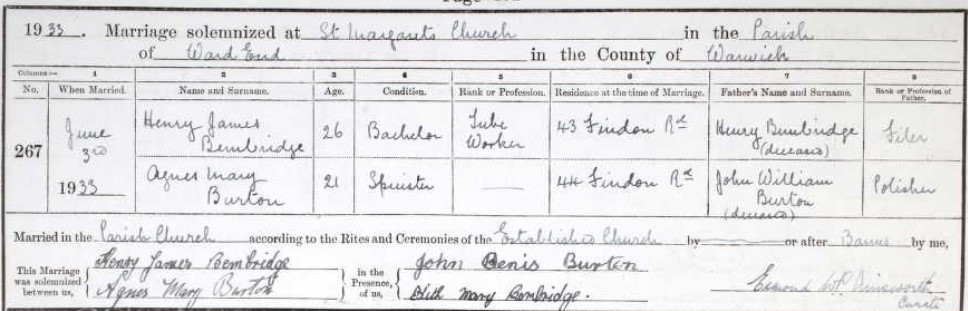 1933. Marriage solemnized at St Margarets Church in the Parish
of Ward End in the County of Warwick
Columns:— 1 2 3 4 5 6 7 8
No. When Married. Name and Surname. Age. Condition. Rank or Profession. Residence at the time of Marriage. Father's Name and Surname. Rank or Profession of Father.
267 June 3rd 1933 Henry James Bembridge 26 Bachelor Tube Worker 43 Findon Rd Henry Bembridge (deceased) Filer
Agnes Mary Burton 21 Spinster — 44 Findon Rd John William Burton (deceased) Polisher
Married in the Parish Church according to the Rites and Ceremonies of the Established Church by — or after Banns by me,
This Marriage was solemnized between us, Henry James Bembridge in the Presence, of us, John Denis Burton
Agnes Mary Burton Mary Bembridge.
Curate